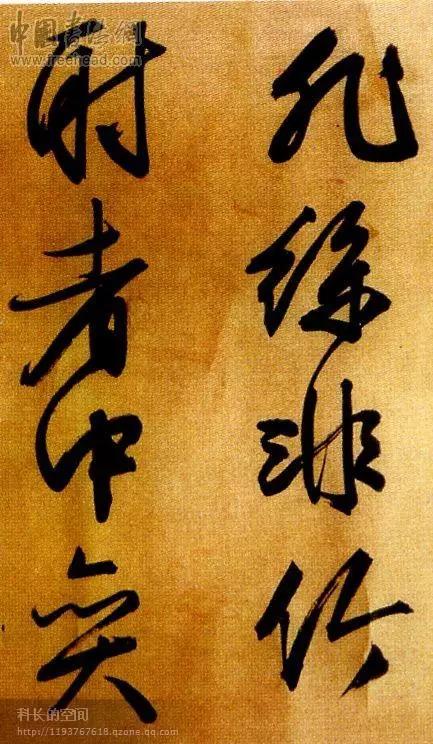 中國書法網
www.freehead.com
非絲非竹
射者中奕
科长的空间
http://1193767618.qzone.qq.com